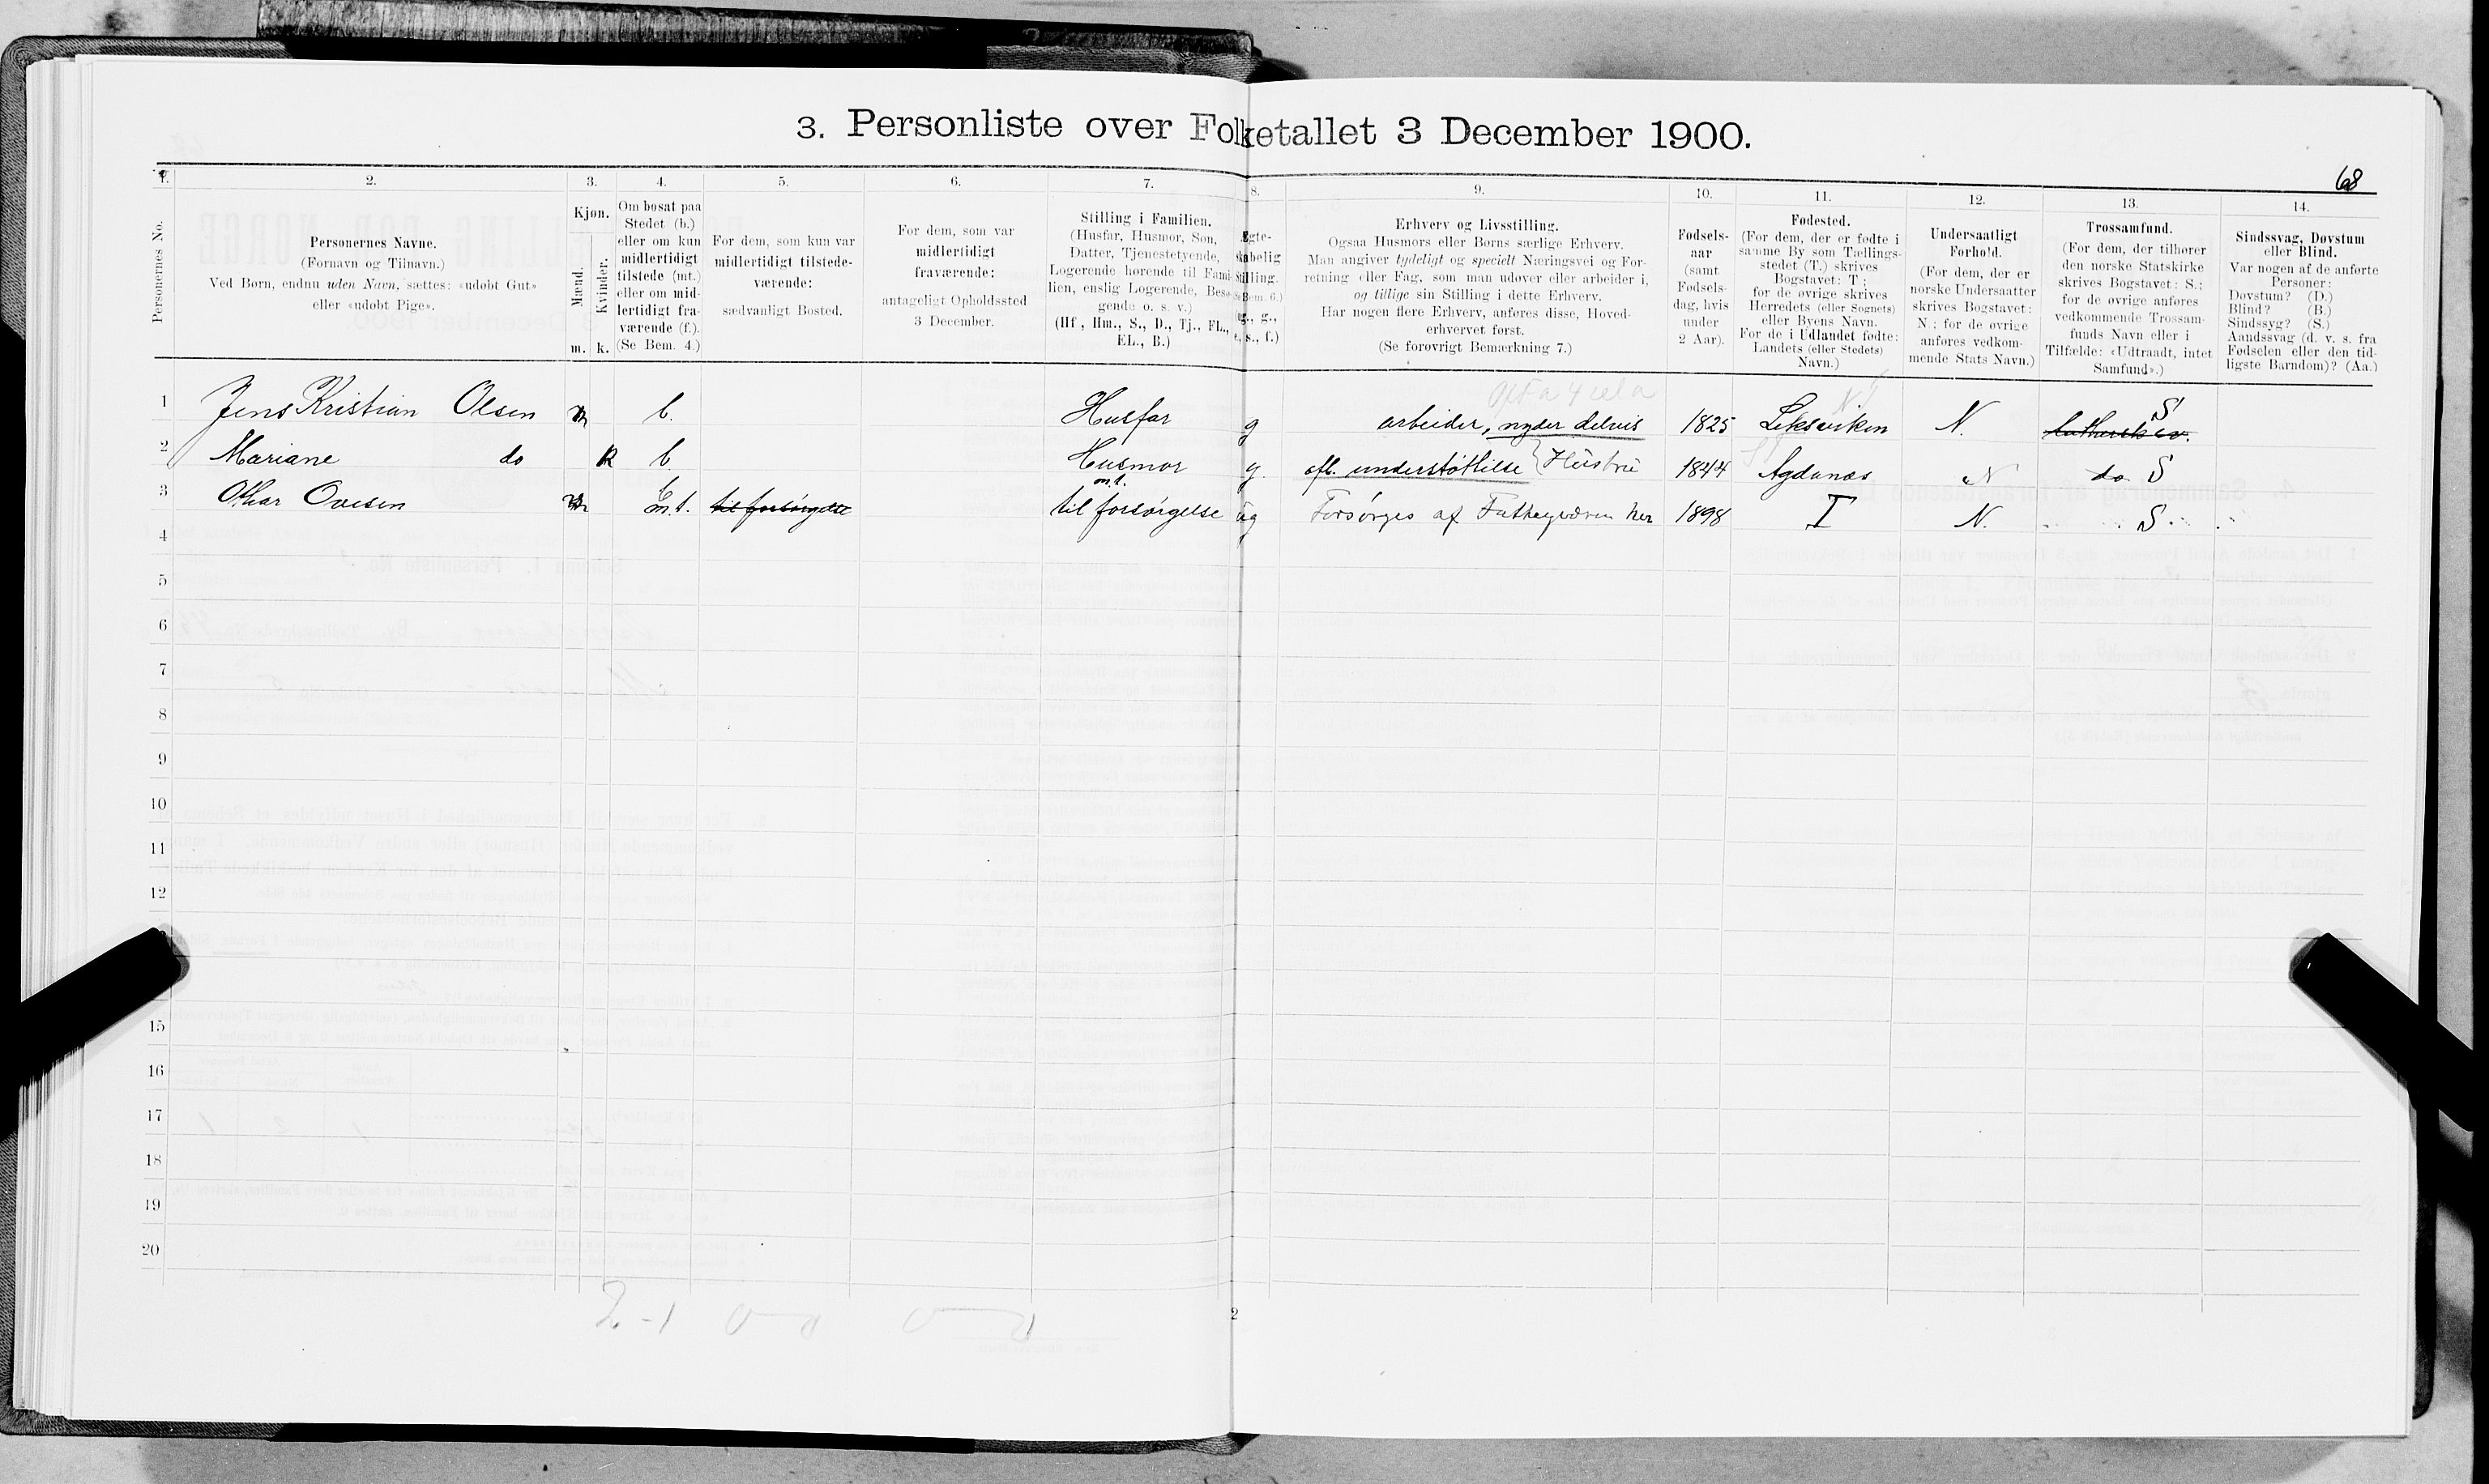 3. Personliste over Folketallet 3 December 1900.
68
1. 2. 3. 4. 5. 6. 7. 8. 9. 10. 11. 12. 13. 14.
Personernes No.
Personernes Navne.
(Fornavn og Tilnavn.)
Ved Børn, endnu uden Navn, sættes: «udøbt Gut»
eller «udøbt Pige».
Kjøn.
Mænd.
Kvinder.
m. k.
Om bosat paa
Stedet (b.)
eller om kun
midlertidigt
tilstede (mt.)
eller om mid-
lertidigt fra-
værende (f.).
(Se Bem. 4.)
For dem, som kun var
midlertidigt tilstede-
værende:
sædvanligt Bosted.
For dem, som var
midlertidigt
fraværende:
antageligt Opholdssted
3 December.
Stilling i Familien.
(Husfar, Husmor, Søn,
Datter, Tjenestetyende,
Logerende hørende til Fami-
lien, enslig Logerende, Besø-
gende o. s. v.)
(Hf., Hm., S., D., Tj., FL.,
EL., B.)
gte-
skabelig
Stilling.
(Se Bem. 6.)
g., g.,
e., s., f.)
Erhverv og Livsstilling.
Ogsaa Husmors eller Børns særlige Erhverv.
Man angiver tydeligt og specielt Næringsvei og For-
retning eller Fag, som man udøver eller arbeider i,
og tillige sin Stilling i dette Erhverv.
Har nogen flere Erhverv, anføres disse, Hoved-
erhvervet først.
(Se forøvrigt Bemærkning 7.)
Fødsels-
aar
(samt
Fødsels-
dag, hvis
under
2 Aar).
Fødested.
(For dem, der er fødte i
samme By som Tællings-
stedet (T.) skrives
Bogstavet: T;
for de øvrige skrives
Herredets (eller Sognets)
eller Byens Navn.
For de i Udlandet fødte:
Landets (eller Stedets)
Navn.)
Undersaatligt
Forhold.
(For dem, der er
norske Undersaatter
skrives Bogstavet:
N.; for de øvrige
anføres vedkom-
mende Stats Navn.)
Trossamfund.
(For dem, der tilhører
den norske Statskirke
skrives Bogstavet: S.;
for de øvrige anføres
vedkommende Trossam-
funds Navn eller i
Tilfælde: «Udtraadt, intet
Samfund».)
Sindssvag, Døvstum
eller Blind.
Var nogen af de anførte
Personer:
Døvstum? (D.)
Blind? (B.)
Sindssyg? (S.)
Aandssvag (d. v. s. fra
Fødselen eller den tid-
ligste Barndom)? (Aa.)
1 Jens Kristian Olsen m b. Husfar g arbeider, nyder delvis 1825 Leksviken N. S
2 Mariane do k b Husmor g. understøttelse Hustru 1844 Agdanes N do S
3 Othar Ovesen m b m.t. til forsørgelse m.t. til forsørgelse ug Forsørges af her 1898 T N. S
4
5
6
7
8
9
10
11
12
15
16
17
18
19
20
2